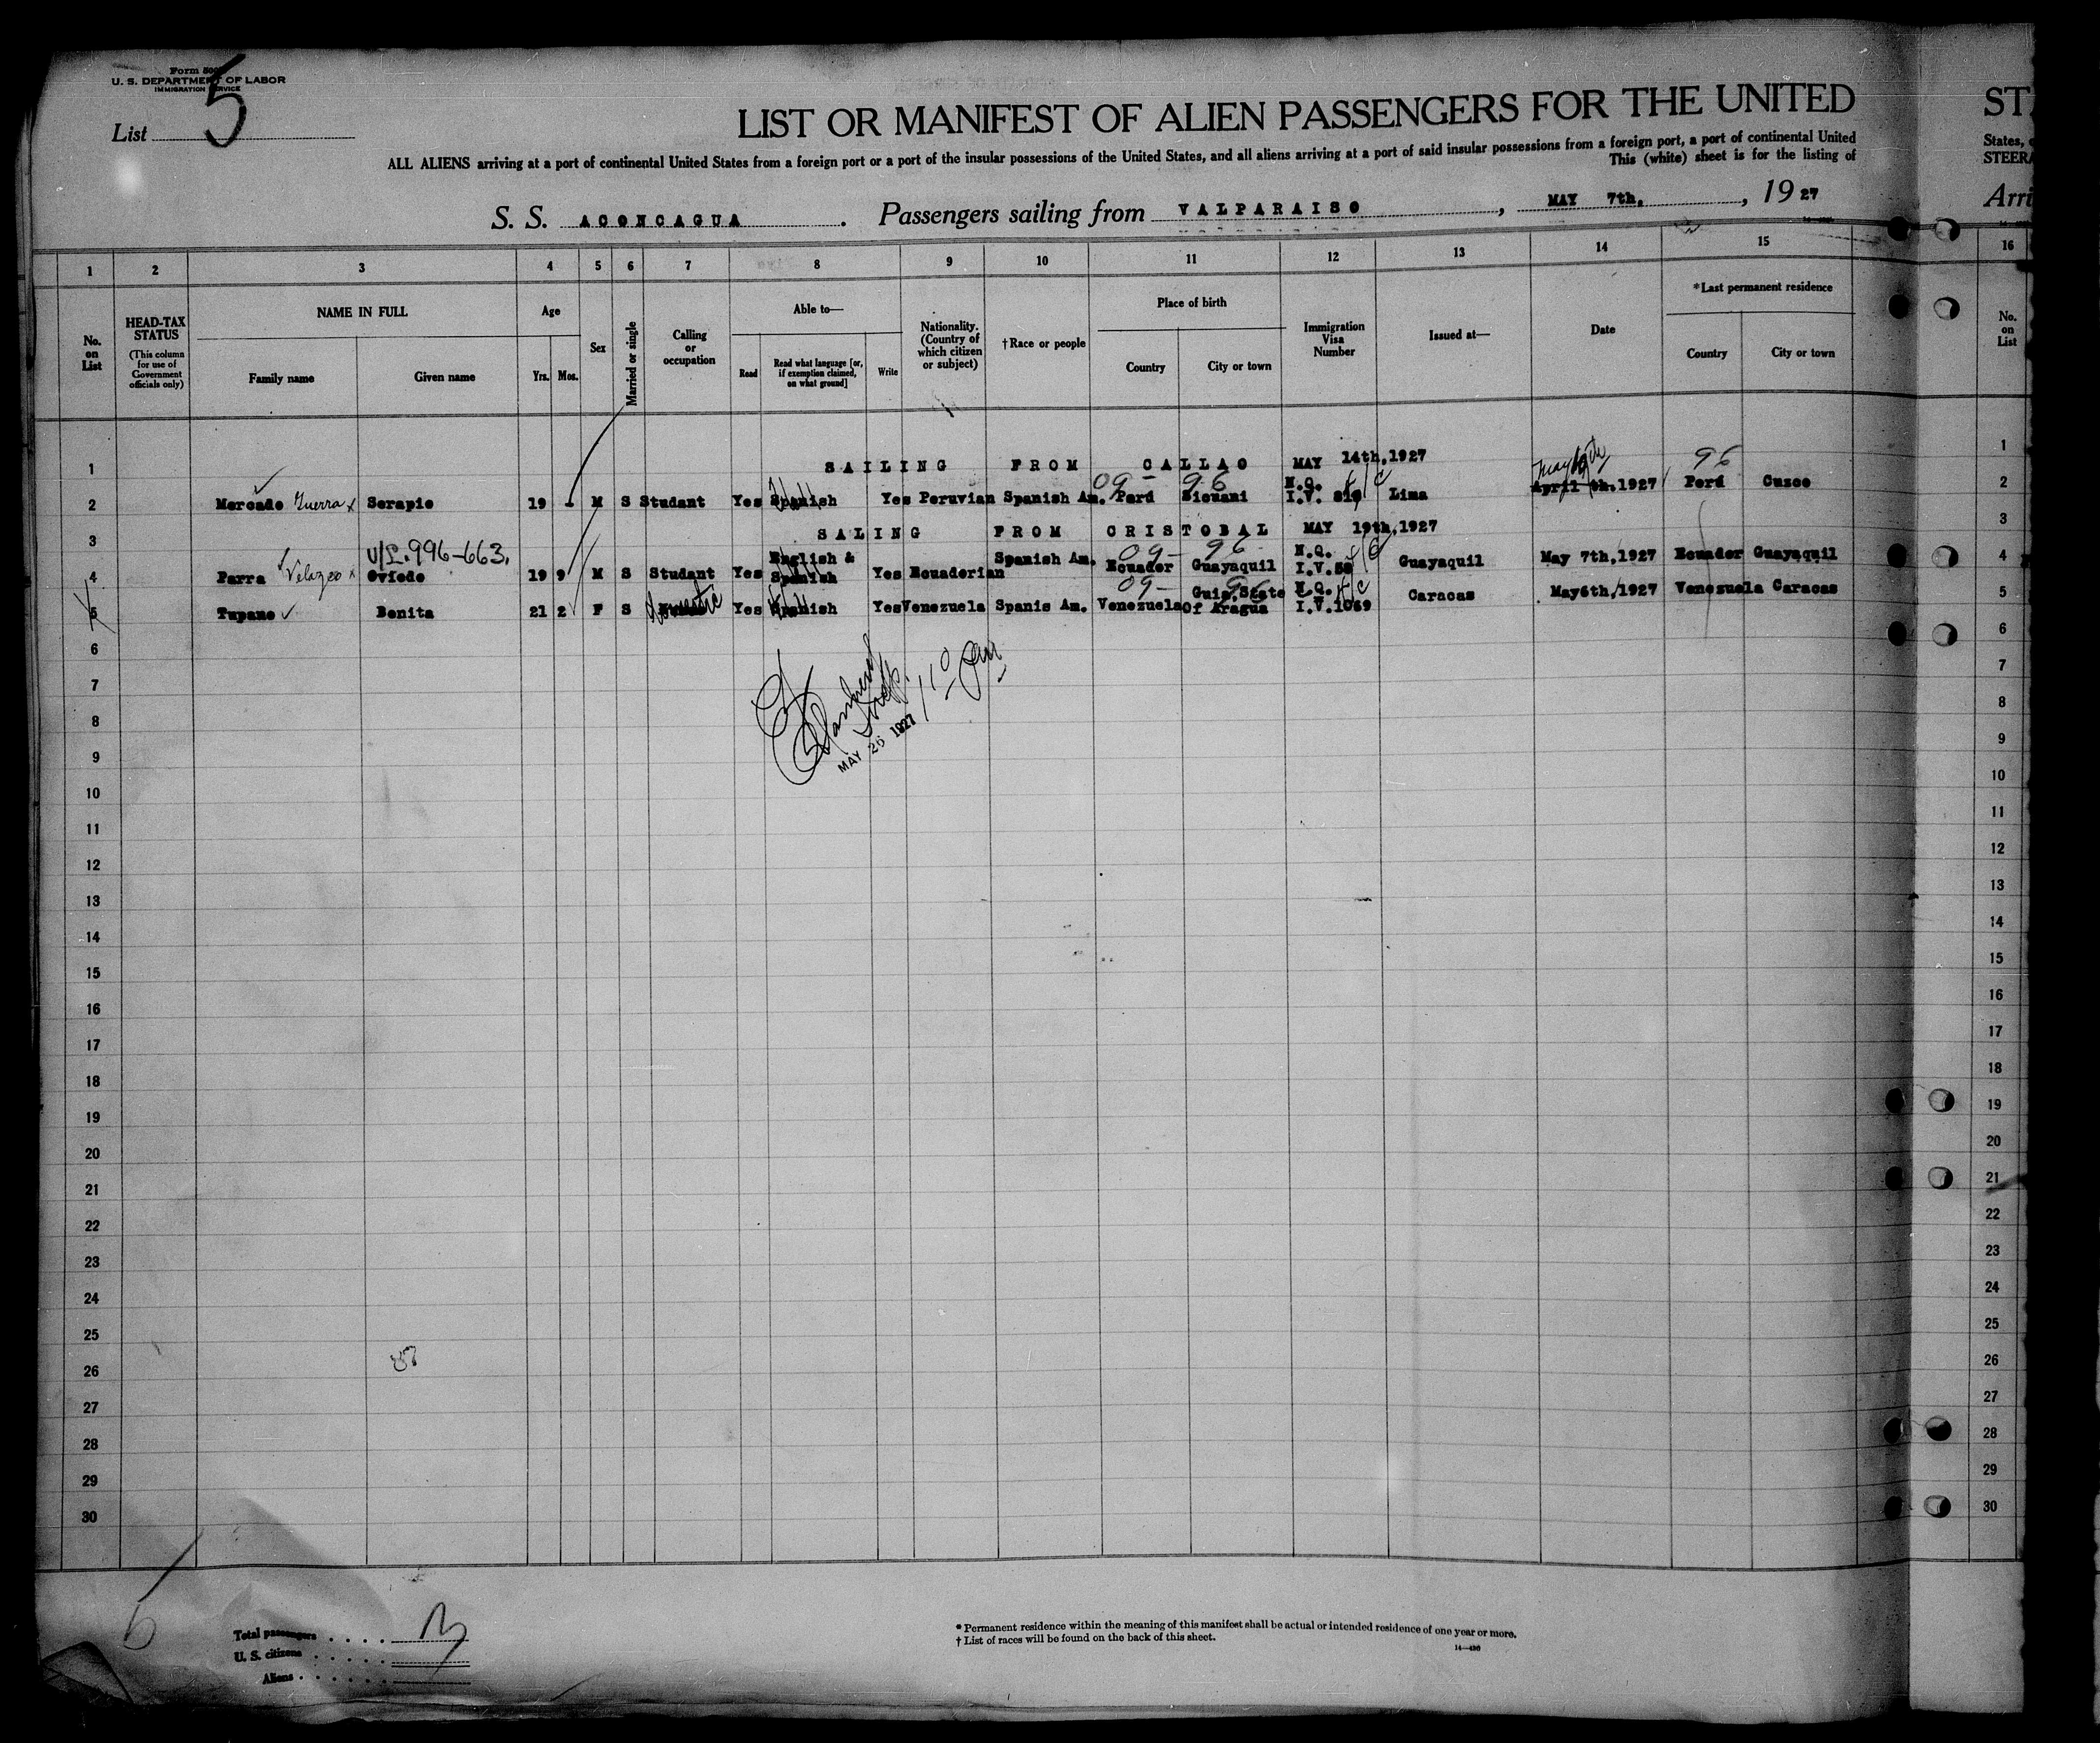 Form 500
U. S. DEPARTMENT OF LABOR
IMMIGRATION SERVICE
List 5
LIST OR MANIFEST OF ALIEN PASSENGERS FOR THE UNITED
ST
ALL ALIENS arriving at a port of continental United States from a foreign port or a port of the insular possessions of the United States, and all aliens arriving at a port of said insular possessions from a foreign port, a port of continental United
States,
This (white) sheet is for the listing of
STEERA
S. S. ACONCAGUA. Passengers sailing from VALPARAISO, MAY 7th., 1927
Arri
1 2 3 4 5 6 7 8 9 10 11 12 13 14 15 16
No. on List
HEAD-TAX STATUS
(This column for use of Government officials only)
NAME IN FULL
Family name
Given name
Age
Yrs. Mos.
Sex
Married or single
Calling or occupation
Able to—
Read
Read what language [or, if exemption claimed, on what ground]
Write
Nationality. (Country of which citizen or subject)
†Race or people
Place of birth
Country
City or town
Immigration Visa Number
Issued at—
Date
*Last permanent residence
Country
City or town
No. on List
1 SAILING FROM CALLAO MAY 14th,1927 96 1
09 - 96 N.Q.
2 Mercado Guerra x Serapio 19 - M S Studant Yes Spanish Yes Peruvian Spanish Am. Perú Sicuani I.V. Lima April 1927 Perú Cuzco 2
3 SALING FROM CRISTOBAL MAY 19th,1927 3
V/L.996-663. English & Spanish Am. 09- 96 N.Q.
4 Parra x Oviedo 19 9 M S Studant Yes Spanish Yes Ecuaderian Ecuador Guayaquil I.V.58 Guayaquil May 7th,1927 Ecuador Guayaquil 4
09- 96 Guis,State N.Q.
5 Tupano Benita 21 2 F S Domestic Yes Spanish Yes Venezuela Spanis Am. Venezuela Of Aragua I.V.1069 Caracas May6th/1927 Venezuela Caracas 5
6 6
7 7
8 8
9 9
10 10
11 11
12 12
13 13
14 14
15 15
16 16
17 17
18 18
19 19
20 20
21 21
22 22
23 23
24 24
25 25
26 26
27 27
28 28
29 29
30 30
MAY 26 1927
Total passengers
U. S. citizens
Aliens
* Permanent residence within the meaning of this manifest shall be actual or intended residence of one year or more.
† List of races will be found on the back of this sheet.